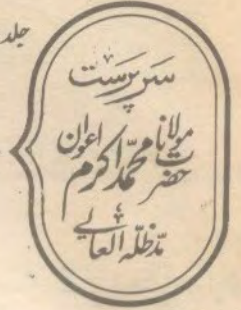 جلد
سرپرست
حضرت مولانا محمد اکرم اعوان
مدظلہ العالی